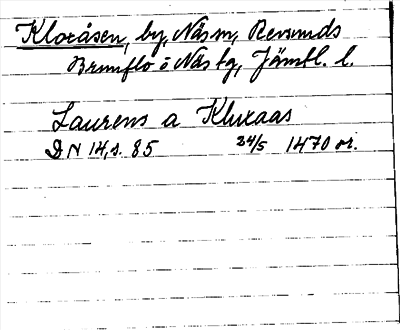 Kloxåsen, by, Näs sn, Revsunds
Brunflo o Näs tg, Jämtl. l.
Laurens a Kluxaas
DN 14, s. 85 24/5 1470 or.